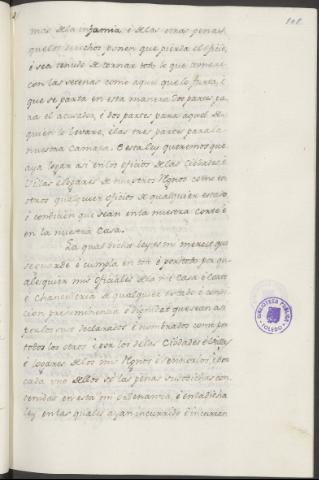 101.
mas de la infamia é de las otras penas
que los derechos ponen que pierda el oficio,
é sea tenudo de tornar todo lo que tomare
con las setenas como aquel que lo furta, é
que se parta en esta manera Dos partes pa-
ra el acusador, é dos partes para aquel de
quien lo levare, é las tres partes para la
nuestra Camara. E esta ley queremos que
aya logar asi en los oficios de las Ciudades é
Villas é logares de nuestros Regnos como en
otros qualquier oficios de qualquier estado,
i condicion que sean en la nuestra Corte é
en la nuestra Casa.
La qual dicha ley es mi merced que
se guarde é cumpla en todo é por todo por qua-
lesquier mis Oficiales de la mi Casa é Corte
é Chancilleria de qualquier estado é condi-
cion preeminencia é dignidad que sean asi
por los suso declarados é nombrados como por
todos los otros é por los de las Ciudades é Villas
é logares de los mis Regnos é Senorios, é por
cada uno dellos so las penas suso dichas con-
tenidas en esta mi Ordenanza, é en la dicha
ley en las quales ayan incurrido é incurran
BIBLIOTECA PUBLICA
TOLEDO